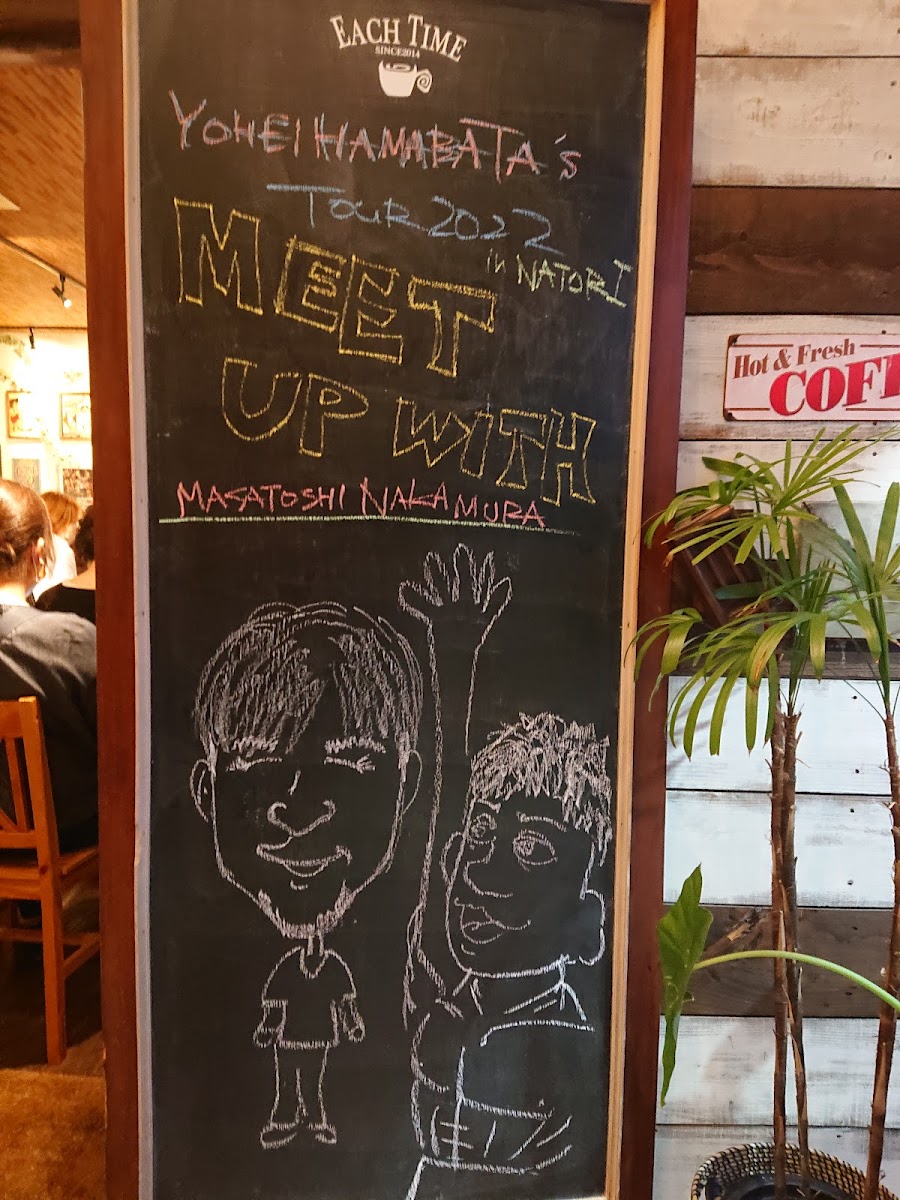 EACH TIME
SINCE2014
YOHEI HAMABATA's
TOUR 2022
in NATORI
MEET
UP WITH
MASATOSHI NAKAMURA
Hot & Fresh
COF